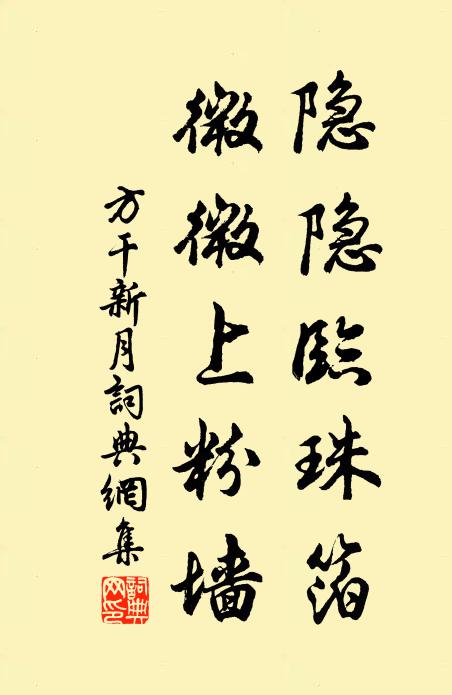 隐隐臨珠箔
微微上粉墙
方干新月詞典網集
詞典網印